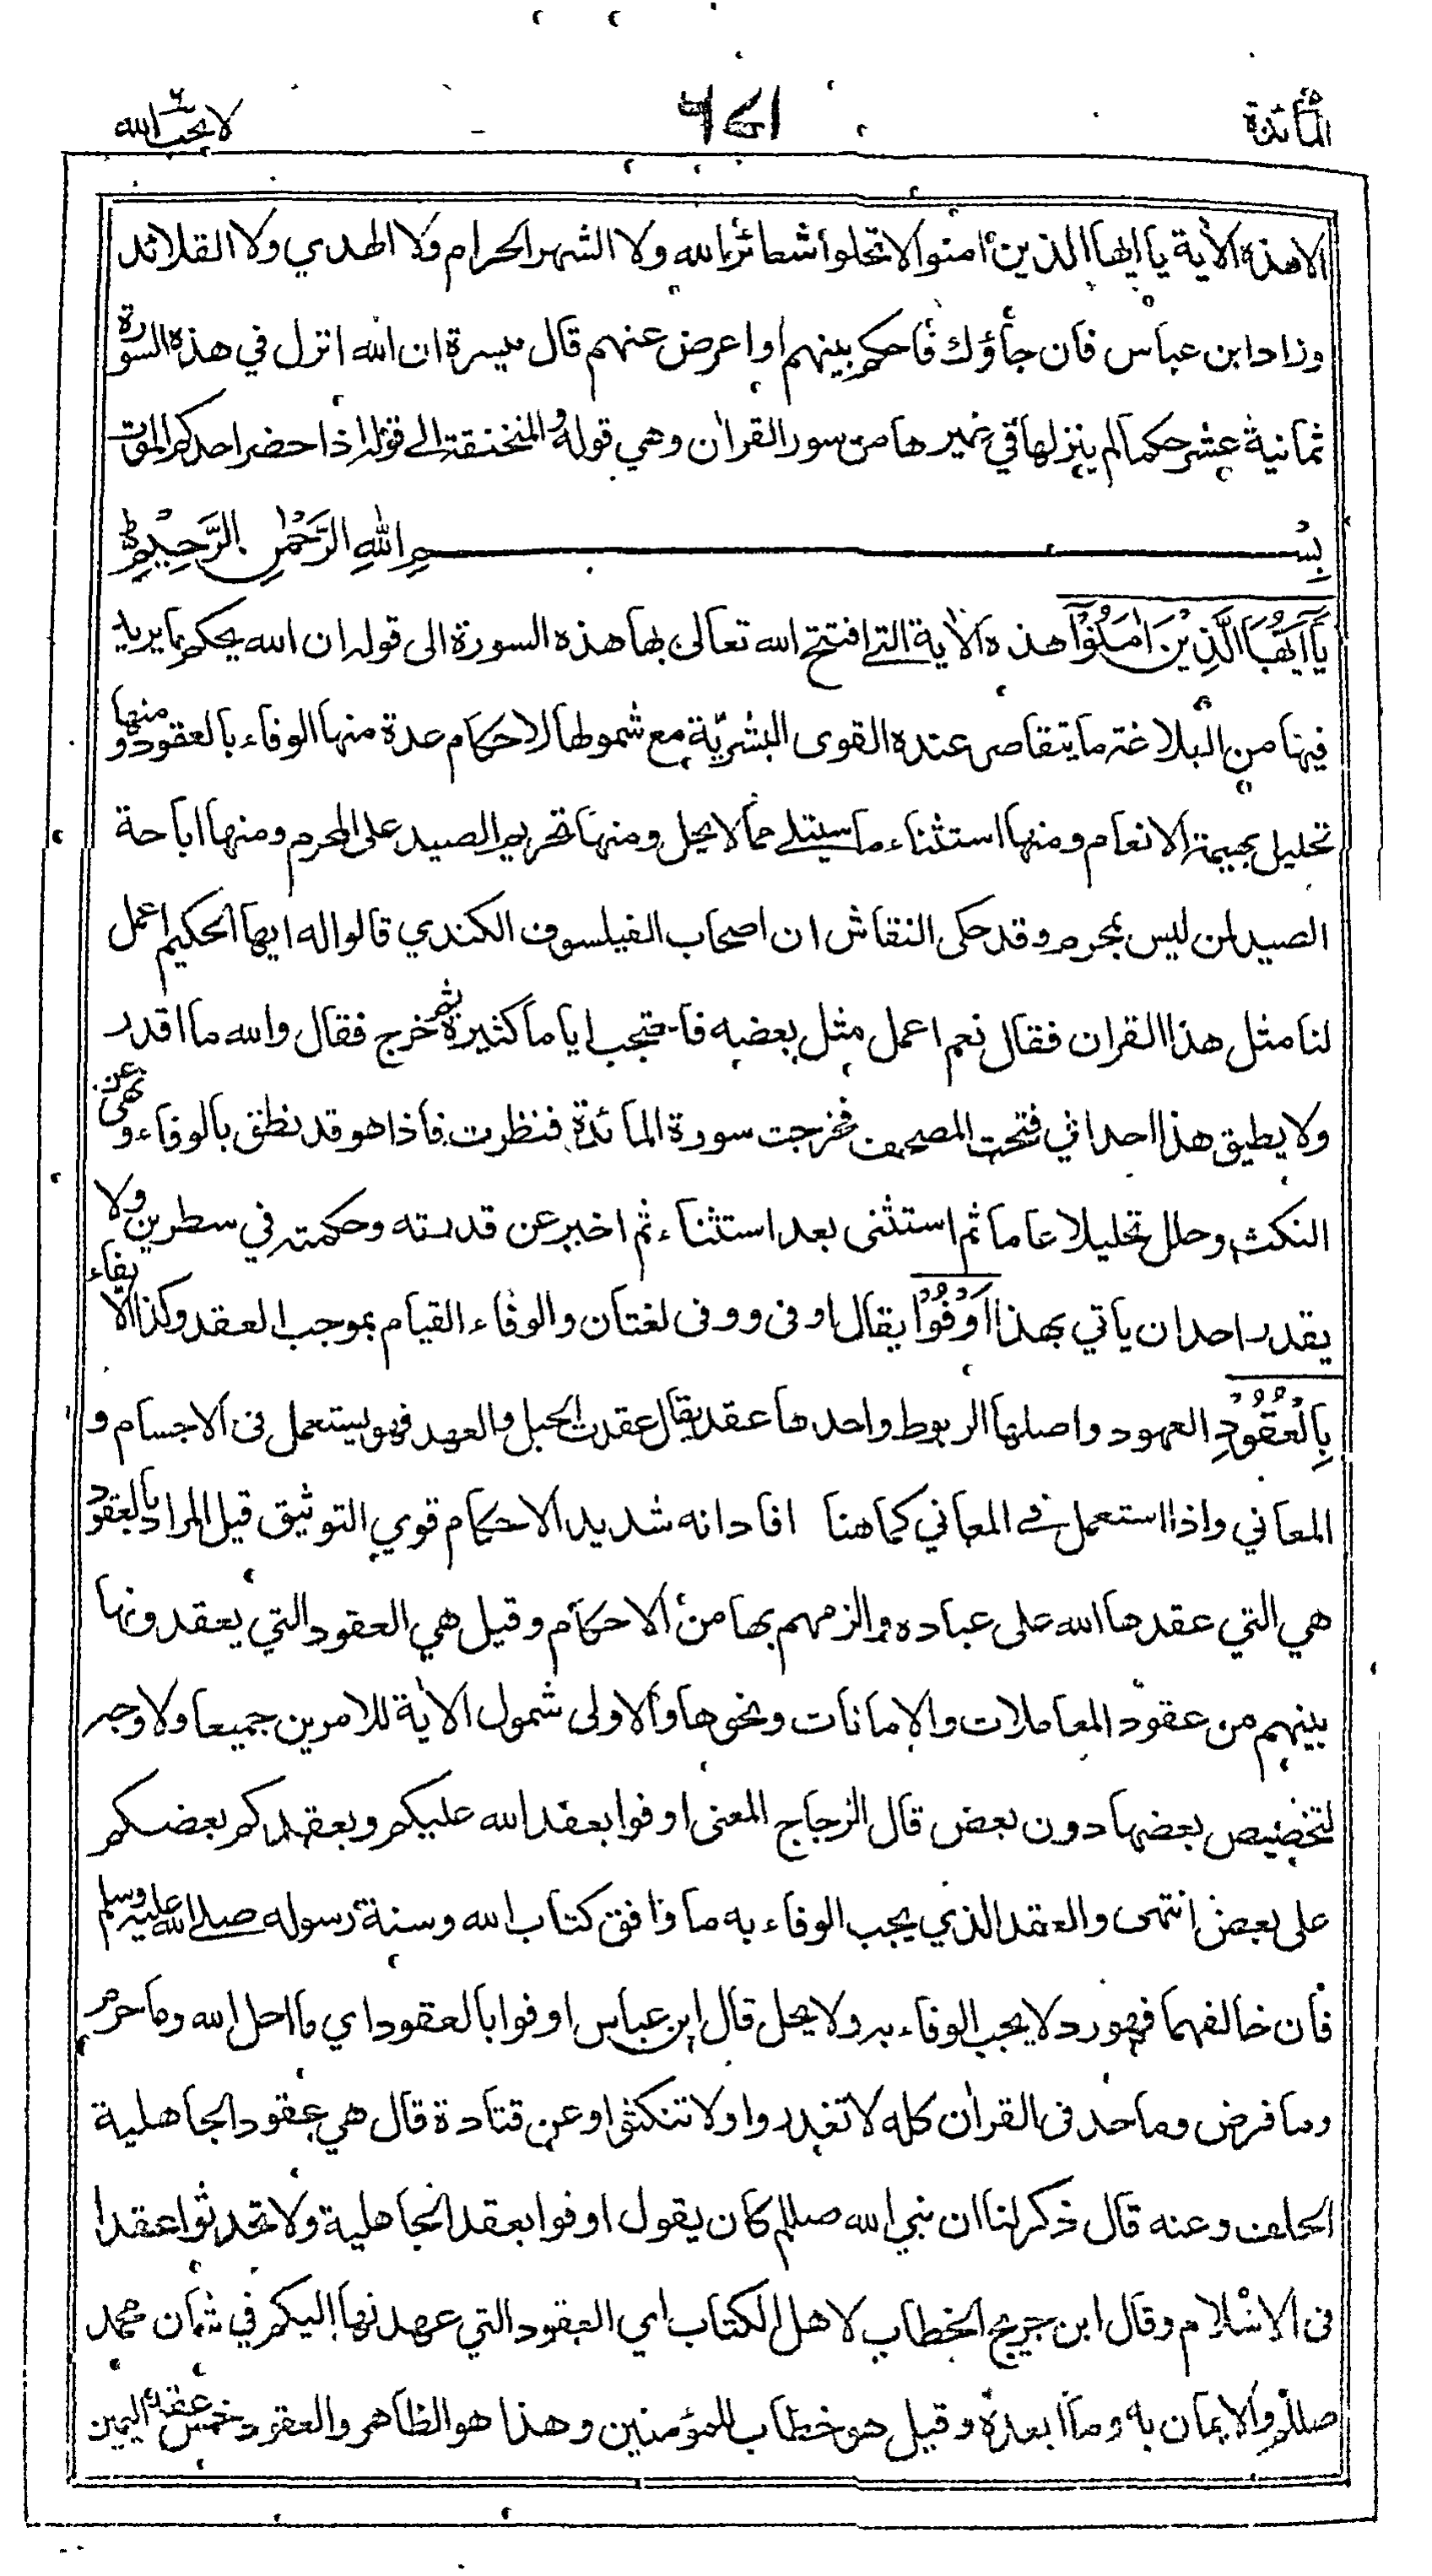 المائدة ٦٤١ لا يحب الله
الا هذه الأية يا ايها الذين أمنوا لا تحلوا شعائر الله ولا الشهر الحرام ولا الهدي ولا القلائد
وزاد ابن عباس فان جاؤك فاحكم بينهم او اعرض عنهم قال ميسرة ان الله انزل في هذه السورة
ثمانية عشر حكما لم ينزلها في غيرها من سور القرأن وهي قوله والمنخنقة الى قوله اذا حضر احدكم الموت
بِسْمِ اللهِ الرَّحْمٰنِ الرَّحِيْمِ
يَآ اَيُّهَا الَّذِيْنَ اٰمَنُوْٓا هذه الأية التي افتتح الله تعالى بها هذه السورة الى قوله ان الله يحكم ما يريد
فيها من البلاغة ما يتقاصر عنده القوى البشريّة مع شمولها لاحكام عدة منها الوفاء بالعقود ومنها
تحليل بهيمة الانعام ومنها استثناء ما سيتلى مما لا يحل ومنها تحريم الصيد على المحرم ومنها اباحة
الصيد لمن ليس بمحرم وقد حكى النقاش ان اصحاب الفيلسوف الكندي قالوا له ايها الحكيم اعمل
لنا مثل هذا القران فقال نعم اعمل مثل بعضه فاحتجب اياما كثيرة ثم خرج فقال والله ما اقدر
ولا يطيق هذا احد اني فتحت المصحف فخرجت سورة المائدة فنظرت فاذا هو قد نطق بالوفاء ونهى عن
النكث وحلل تحليلا عاما ثم استثنى بعد استثناء ثم اخبر عن قدرته وحكمته في سطرين ولا
يقدر احد ان ياتي بهذا اَوْفُوْا يقال اوفى ووفى لغتان والوفاء القيام بموجب العقد وكذا الايفاء
بِالْعُقُوْدِ العهود واصلها الربوط واحدها عقد يقال عقدت الحبل والعهد فهو يستعمل فى الاجسام و
المعاني واذا استعمل في المعاني كما هنا افاد انه شديد الاحكام قوي التوثيق قيل المراد بالعقود
هي التي عقدها الله على عباده والزمهم بها من الاحكام وقيل هي العقود التي يعقدونها
بينهم من عقود المعاملات والامانات ونحوها والاولى شمول الأية للامرين جميعا ولا وجه
لتخصيص بعضها دون بعض قال الزجاج المعنى اوفوا بعقد الله عليكم وبعقدكم بعضكم
على بعض انتهى والعقد الذي يجب الوفاء به ما وافق كتاب الله وسنة رسوله صلى الله عليه وسلم
فان خالفهما فهو رد لا يجب الوفاء به ولا يحل قال ابن عباس اوفوا بالعقود اي ما احل الله وما حرم
وما فرض وما حد فى القرأن كله لا تغدروا ولا تنكثوا وعن قتادة قال هي عقود الجاهلية
الحلف وعنه قال ذكر لنا ان نبي الله صللم كان يقول اوفوا بعقد الجاهلية ولا تحدثوا عقدا
فى الاسلام وقال ابن جريج الخطاب لاهل الكتاب اي العقود التي عهدنها اليكم في شان محمد
صللم والايمان به وما ابعده وقيل هو خطاب للمؤمنين وهذا هو الظاهر والعقود خمس عقدة اليمين